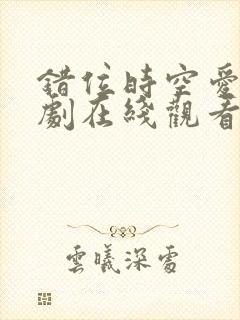 錯位時空愛
劇在綫觀看
雲曦深處